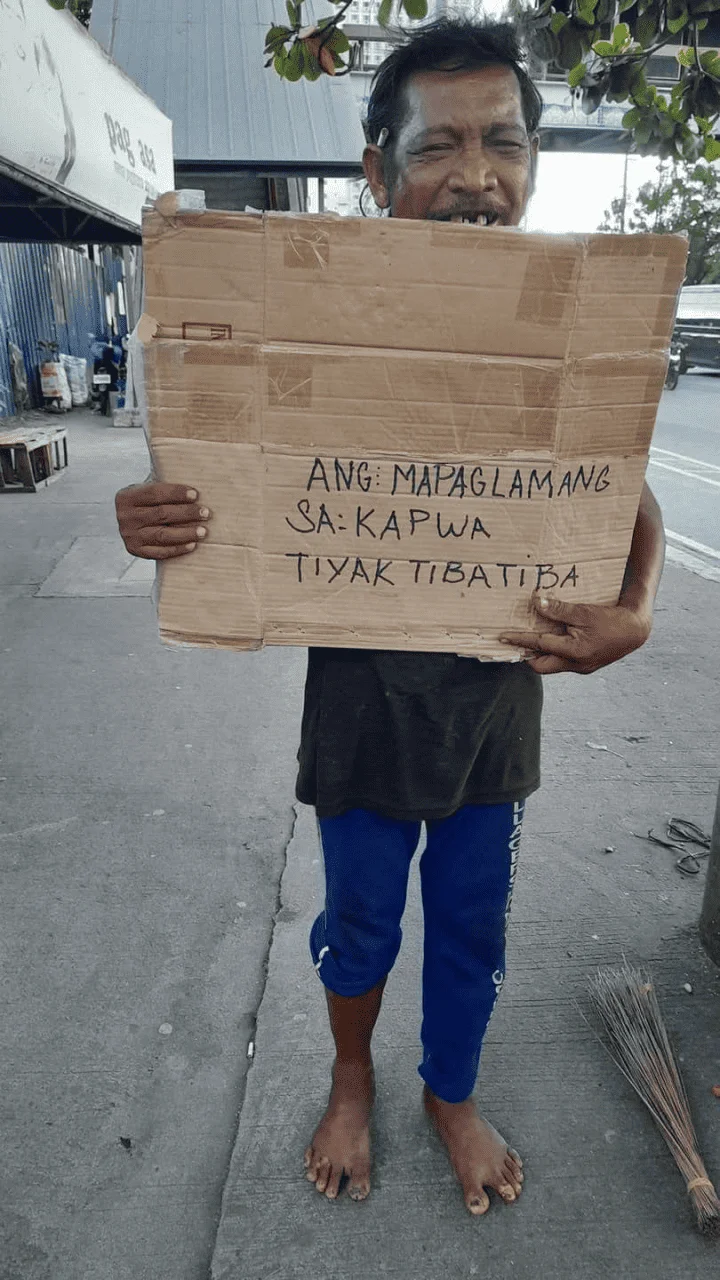 pag asa
ANG: MAPAGLAMANG
SA: KAPWA
TIYAK TIBATIBA